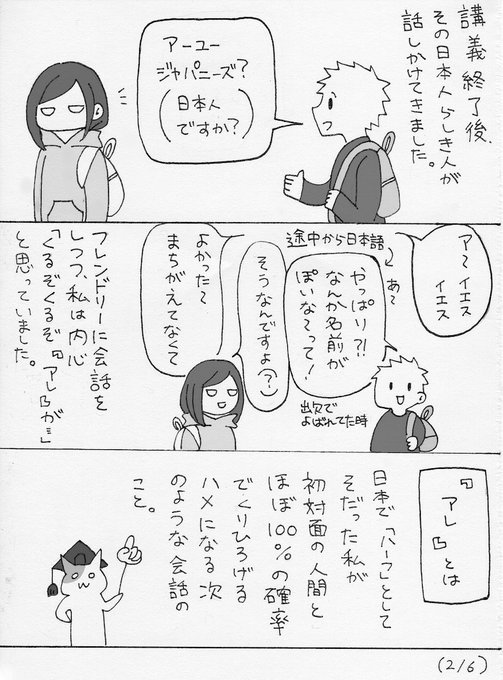 講義終了後、
その日本人らしき人が
話しかけてきました。
アーユー
ジャパニーズ?
(日本人
ですか?)
アー イエス
イエス
途中から日本語
あ〜
やっぱり?!
なんか名前が
ぽいなーって!
出欠で
よばれてた時
そうなんですよ(?)
よかった〜
まちがえてなくて
フレンドリーに会話を
しつつ、私は内心
「くるぞくるぞ『アレ』が…」
と思っていました。
『アレ』とは
日本で「ハーフ」として
そだった私が
初対面の人間と
ほぼ100%の確率
でくりひろげる
ハメになる次
のような会話の
こと。
(2/6)